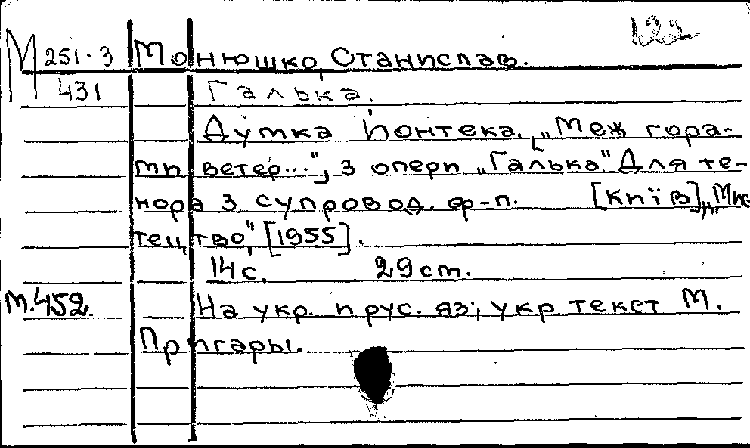 122
М 251-3 Монюшко, Станислав.
431 Галька.
Думка Йонтека. „Меж гора-
ми ветер...", з опери „Галька" Для те-
нора з супровод. ф-п. [Київ], „Мис
тецтво", [1955].
14 с. 29 cm.
М.452. На укр. и рус. яз; укр текст М.
Пригары.